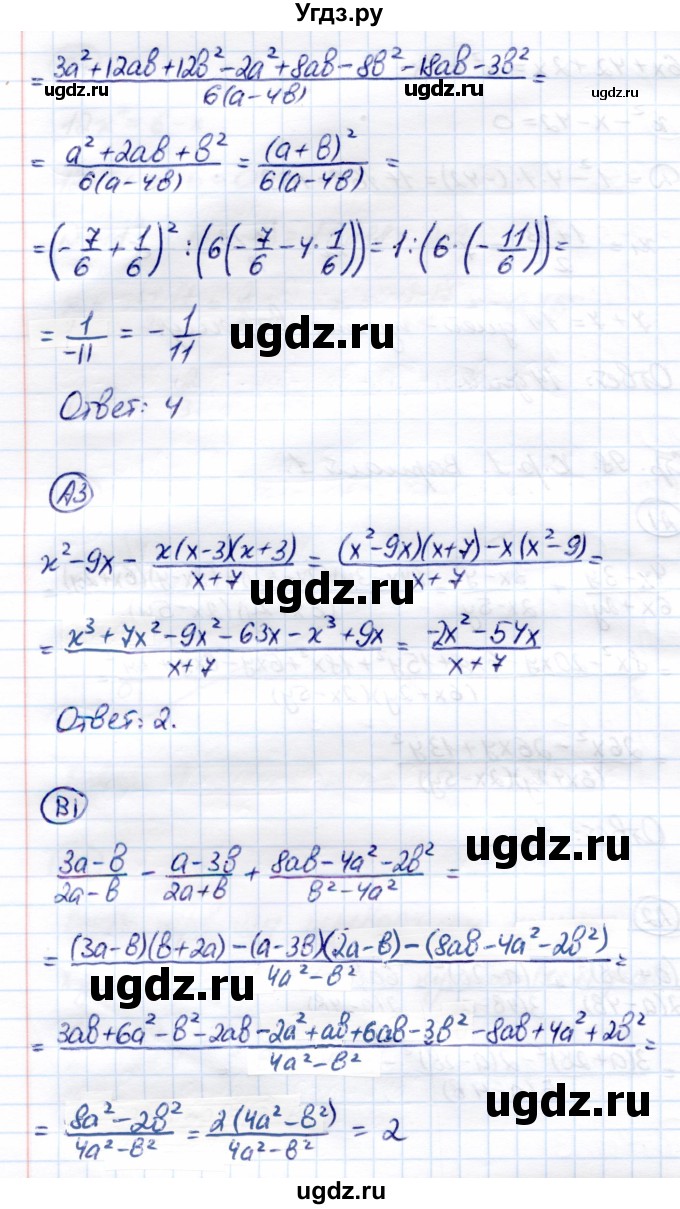 Угдз.ру
= (3a²+12ab+12b²-2a²+8ab-8b²-18ab-3b²)/(6(a-4b)) =
ugdz.ru ugdz.ru ugdz.ru
= (a²+2ab+b²)/(6(a-4b)) = (a+b)²/(6(a-4b)) =
=(-7/6+1/6)²:(6(-7/6-4·1/6))=1:(6·(-11/6))=
= 1/-11 = -1/11
ugdz.ru
Ответ: 4
A3
x²-9x- x(x-3)(x+3)/(x+7) = ((x²-9x)(x+7)-x(x²-9))/(x+7) =
ugdz.ru
= (x³+7x²-9x²-63x-x³+9x)/(x+7) = (-2x²-54x)/(x+7)
Ответ: 2.
B1
ugdz.ru
(3a-b)/(2a-b) - (a-3b)/(2a+b) + (8ab-4a²-2b²)/(b²-4a²) =
= ((3a-b)(b+2a)-(a-3b)(2a-b)-(8ab-4a²-2b²))/(4a²-b²) =
ugdz.ru
= (3ab+6a²-b²-2ab-2a²+ab+6ab-3b²-8ab+4a²+2b²)/(4a²-b²) =
= (8a²-2b²)/(4a²-b²) = 2(4a²-b²)/(4a²-b²) = 2
ugdz.ru
ugdz.ru